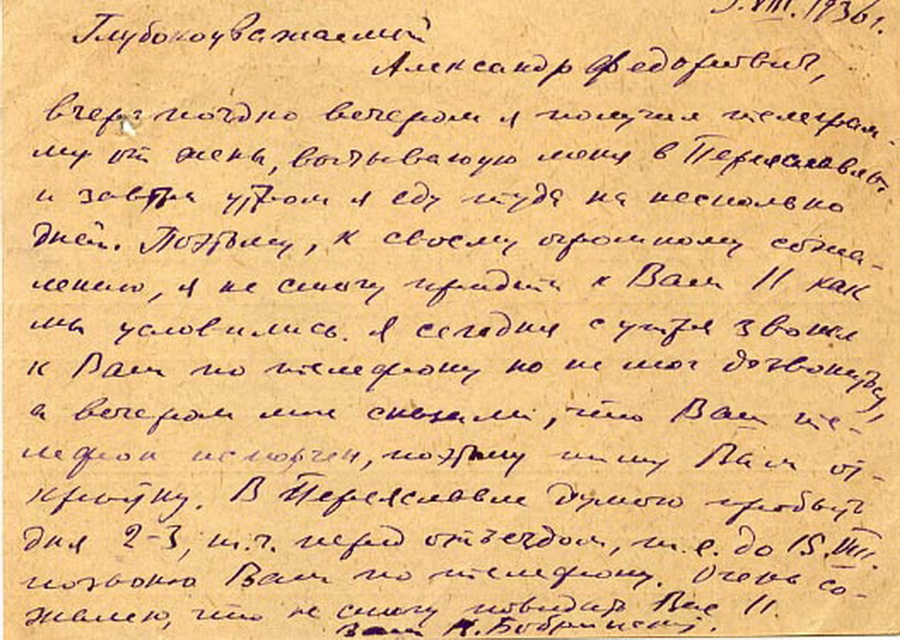 9.VIII.1936г.
Глубокоуважаемый
Александр Федорович,
вчера поздно вечером я получил телеграм-
му от жены, вызывающую меня в Переяславль.
и завтра утром я еду туда на несколько
дней. Поэтому, к своему огромному сожа-
лению, я не смогу придти к Вам 11 как
мы условились. Я сегодня с утра звонил
к Вам по телефону но не мог дозвониться,
а вечером мне сказали, что Ваш те-
лефон испорчен, поэтому пишу Вам от-
крытку. В Переяславле думаю пробыть
дня 2-3, т.ч. перед отъездом, т.е. до 15.VIII.
позвоню Вам по телефону. Очень со-
жалею, что не смогу повидать Вас 11.
Ваш Н.Бобринский.